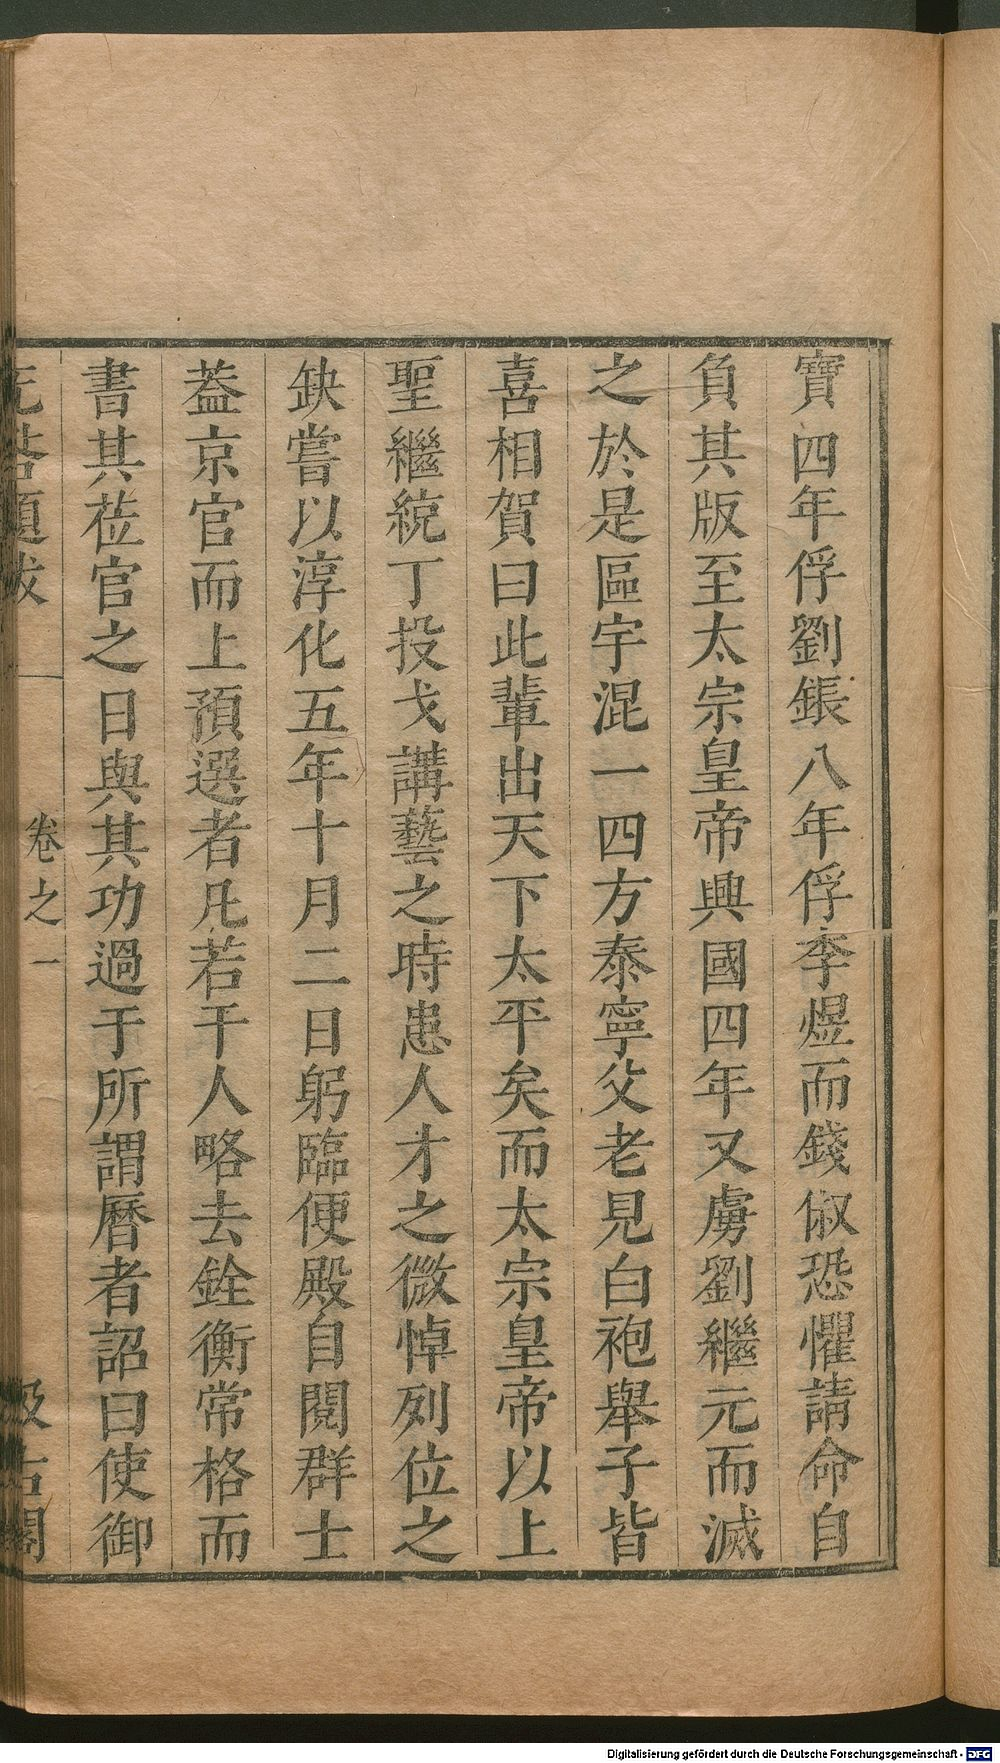 寶四年俘劉鋹八年俘李煜而錢俶恐懼請命自
負其版至太宗皇帝興國四年又虜劉繼元而滅
之於是區宇混一四方泰寧父老見白袍舉子皆
喜相賀曰此輩出天下太平矣而太宗皇帝以上
聖繼統丁投戈講藝之時患人才之微悼列位之
缺嘗以淳化五年十月二日躬臨便殿自閱群士
葢京官而上預選者凡若干人略去銓衡常格而
書其莅官之日與其功過于所謂曆者詔曰使御
无咎題跋 卷之一 汲古閣
Digitalisierung gefördert durch die Deutsche Forschungsgemeinschaft - DFG